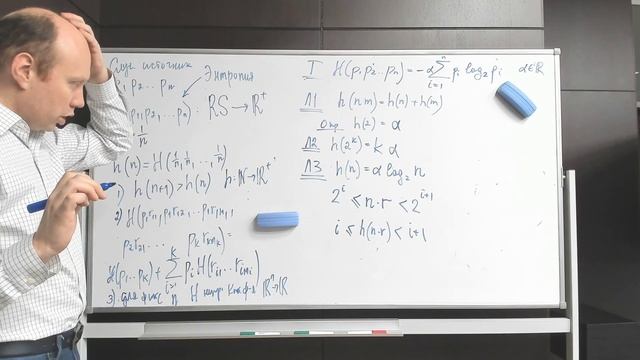 источник
Энтропия
p₁ p₂ ... pₘ
p₁, p₂, ... pₙ) : RS → ℝ⁺
1/n
h(n) = H(1/n, 1/n, ..., 1/n)
1) h(n+1) > h(n) h: ℕ → ℝ⁺
2) H(p₁r₁₁, p₁r₁₂, ... p₁r₁ₘ₁,
p₂r₂₁ ... pₖrₖₘₖ) =
H(p₁ ... pₖ) + ∑ᵢ₌₁ᵏ pᵢ H(rᵢ₁ ... rᵢₘᵢ)
3) для фикс n H непр как ф-я ℝⁿ → ℝ
T H(p₁ p₂ ... pₙ) = -α ∑ᵢ₌₁ⁿ pᵢ log₂ pᵢ α ∈ ℝ
Л1 h(nm) = h(n) + h(m)
Опр h(2) = α
Л2 h(2ᵏ) = k α
Л3 h(n) = α log₂ n
2ⁱ ≤ n·r < 2ⁱ⁺¹
i ≤ h(n·r) < i+1